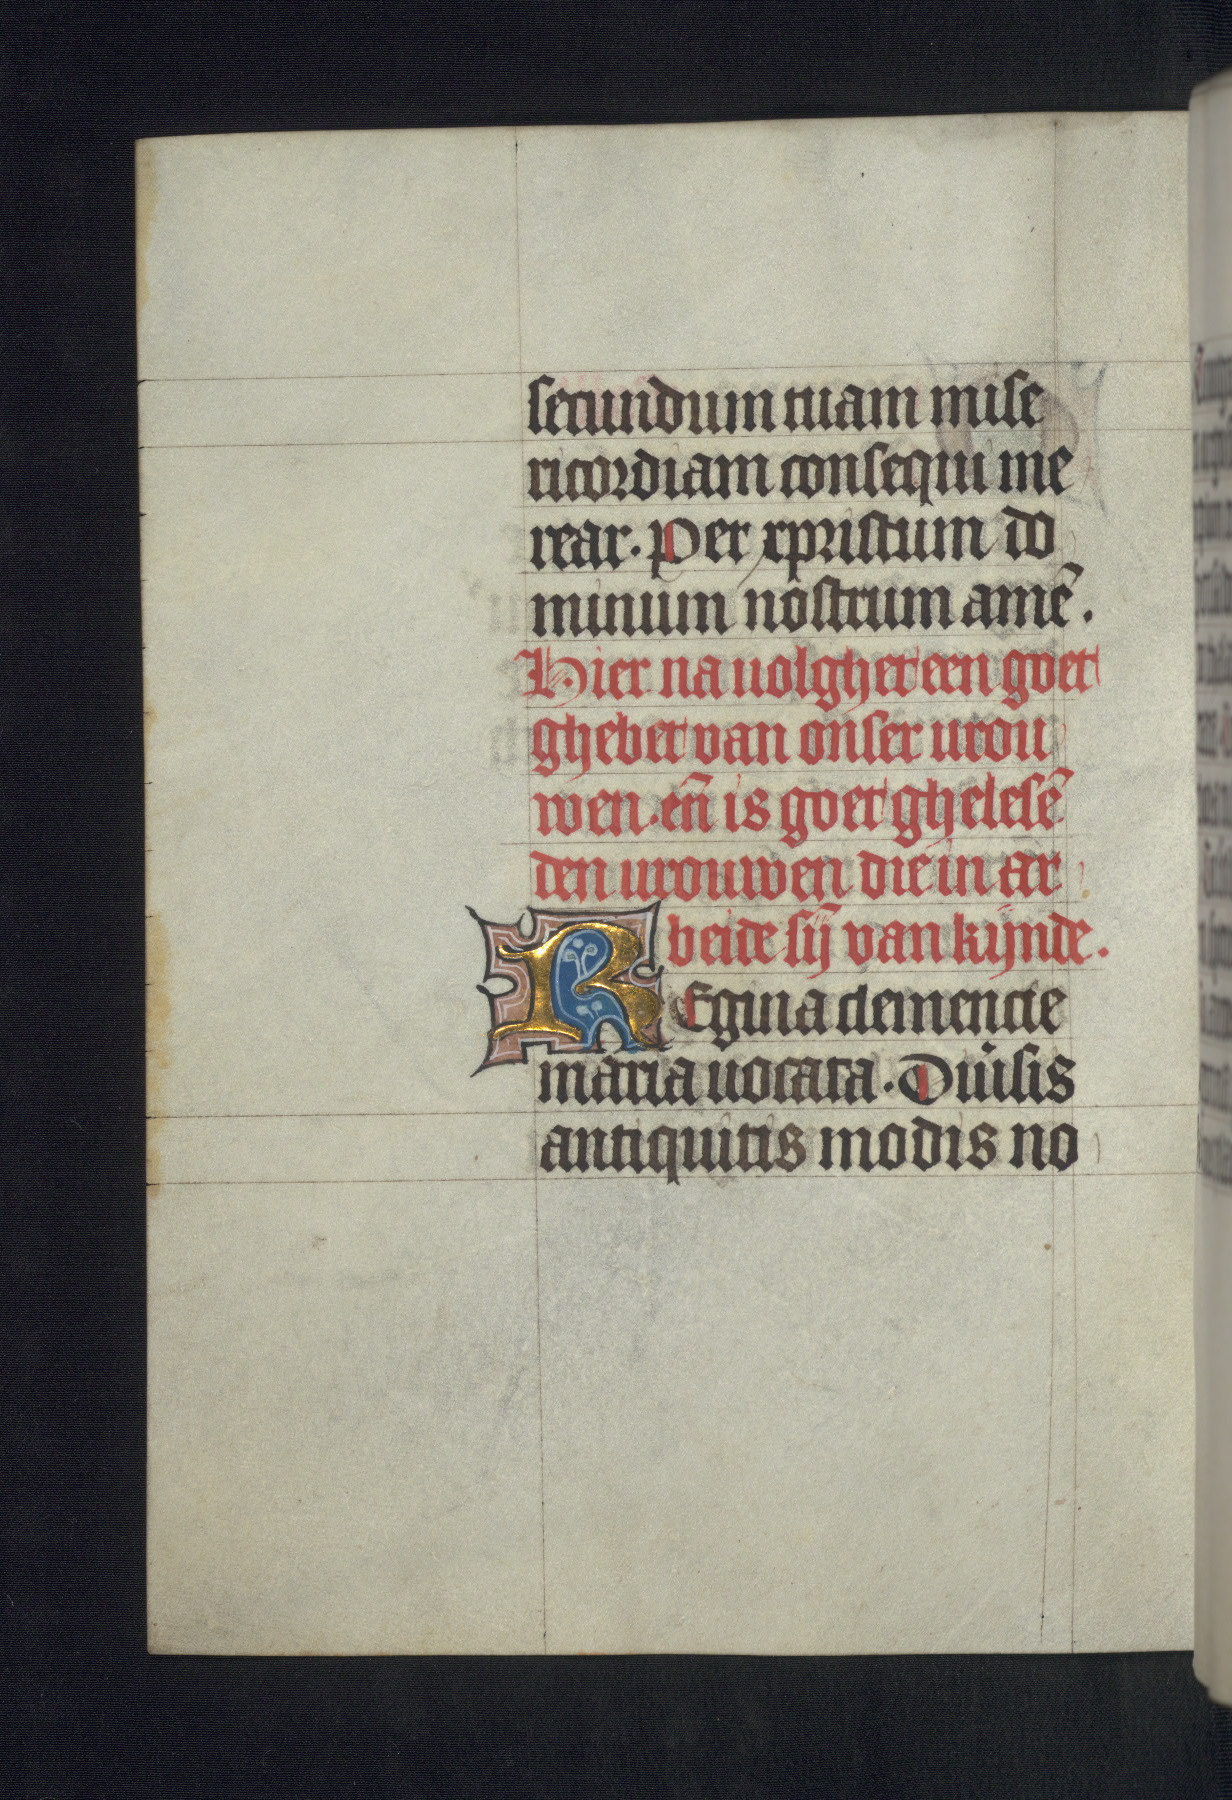 secundum tuam mise
ricordiam consequi me
rear. Per xpristum do
minum nostrum amē.
Hier na uolghet een goet
ghebet van onser urou
wen. en̄ is goet ghelesē
den urouwen die in ar
beide sij van kijnde.
REgina clemencie
maria uocata. Diuisis
antiquitis modis no